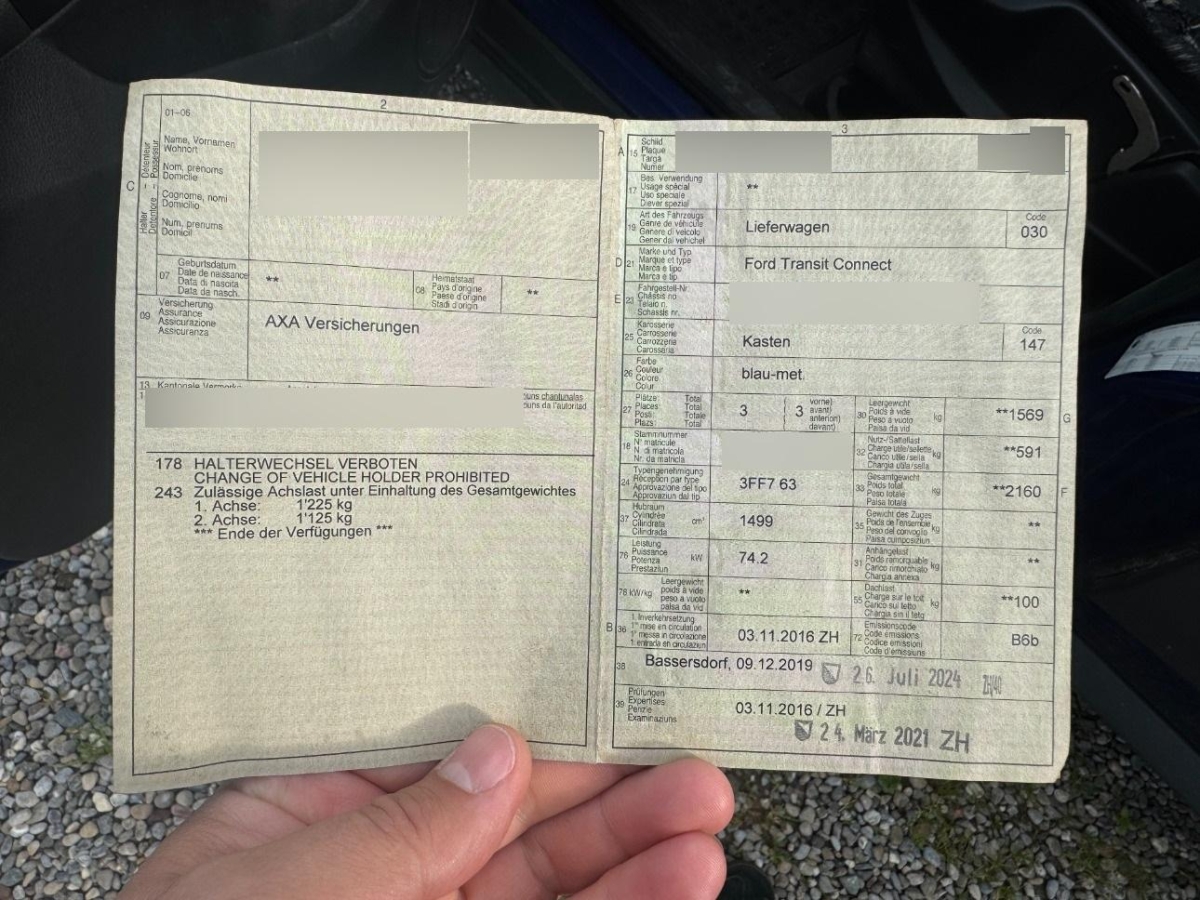 2
01-06
C
Halter
Détenteur
Detentore
Possessur
Name, Vornamen
Wohnort
Nom, prénoms
Domicile
Cognome, nomi
Domicilio
Num, prenums
Domicil
07
Geburtsdatum
Date de naissance
Data di nascita
Data da nasch.
**
08
Heimatstaat
Pays d'origine
Paese d'origine
Stadi d'origin
**
09
Versicherung
Assurance
Assicurazione
Assicuranza
AXA Versicherungen
13 Kantonale Vermerke
178 HALTERWECHSEL VERBOTEN
CHANGE OF VEHICLE HOLDER PROHIBITED
243 Zulässige Achslast unter Einhaltung des Gesamtgewichtes
1. Achse: 1'225 kg
2. Achse: 1'125 kg
*** Ende der Verfügungen ***
3
A 15
Schild
Plaque
Targa
Numer
17
Bes. Verwendung
Usage spécial
Uso speciale
Diever spezial
**
19
Art des Fahrzeugs
Genre de véhicule
Genere di veicolo
Gener dal vehichel
Lieferwagen
Code
030
D 21
Marke und Typ
Marque et type
Marca e tipo
Marca e tip
Ford Transit Connect
E 23
Fahrgestell-Nr.
Châssis no
Telaio n.
Schassis nr.
25
Karosserie
Carrosserie
Carrozzeria
Carossaria
Kasten
Code
147
26
Farbe
Couleur
Colore
Colur
blau-met.
27
Plätze Total
Places Total
Posti Totale
Plazs Total
3
( 3
vorne)
avant)
anteriori)
davant)
30
Leergewicht
Poids à vide
Peso a vuoto
Paisa da vid
kg
**1569
G
18
Stammnummer
N° matricule
N. di matricola
Nr. da matricla
32
Nutz-/Sattellast
Charge utile/sellette
Carico utile/sella
Chargia utila/sella
kg
**591
24
Typengenehmigung
Réception par type
Approvazione del tipo
Approvaziun dal tip
3FF7 63
33
Gesamtgewicht
Poids total
Peso totale
Paisa totala
kg
**2160
F
37
Hubraum
Cylindrée
Cilindrata
Cilindrada
cm³
1499
35
Gewicht des Zuges
Poids de l'ensemble
Peso del convoglio
Paisa cumposiziun
kg
**
76
Leistung
Puissance
Potenza
Prestaziun
kW
74.2
31
Anhängelast
Poids remorquable
Carico rimorchiato
Chargia annexa
kg
**
78 kW/kg
Leergewicht
poids à vide
peso a vuoto
paisa da vid
**
55
Dachlast
Charge sur le toit
Carico sul tetto
Chargia sin il tetg
kg
**100
B 36
1. Inverkehrsetzung
1re mise en circulation
1a messa in circolazione
1. entrada en circulaziun
03.11.2016 ZH
72
Emissionscode
Code émissions
Codice emissioni
Code d'emissiuns
B6b
38
Bassersdorf, 09.12.2019
26. Juli 2024 ZH/40
39
Prüfungen
Expertises
Perizie
Examinaziuns
03.11.2016 / ZH
24. März 2021 ZH